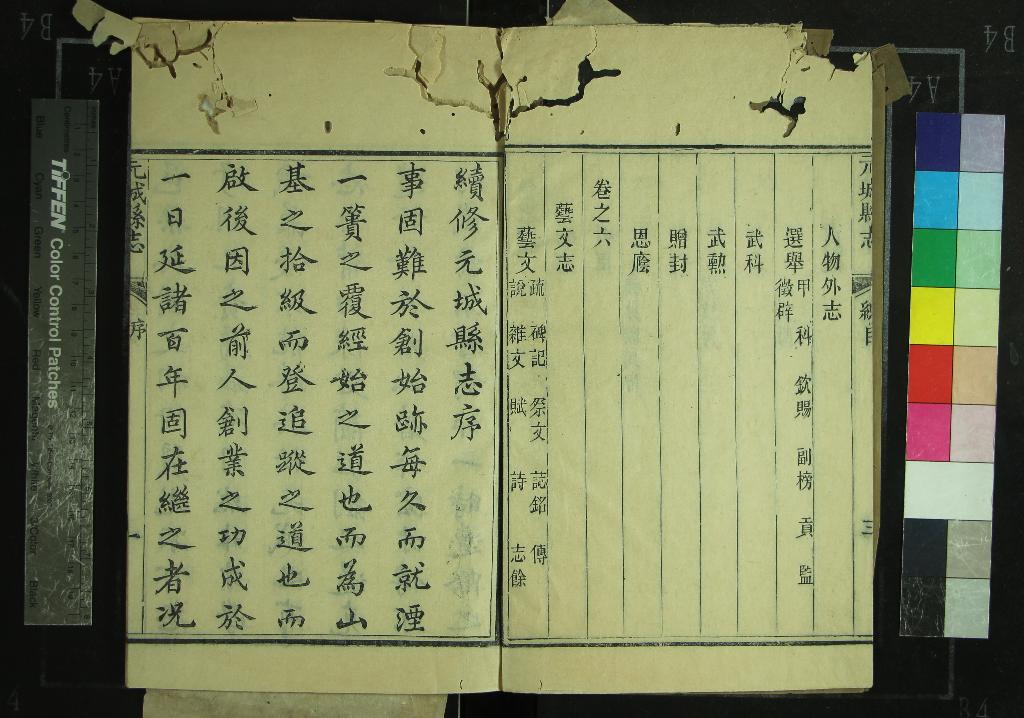 元城縣志 總目 三
人物外志
選舉 甲科 欽賜 副榜 貢 監
徵辟
武科
武勳
贈封
恩廕
卷之六
藝文志
藝文 疏 碑記 祭文 誌銘 傳
說 雜文 賦 詩 志餘
續修元城縣志序
事固難於創始跡每久而就湮
一簣之覆經始之道也而為山
基之拾級而登追蹤之道也而
啟後因之前人創業之功成於
一日延諸百年固在繼之者况
元城縣志 序 一
TIFFEN Color Control Patches
Blue
Cyan
Green
Yellow
Red
Magenta
White
3/Color
Black
B4
A4